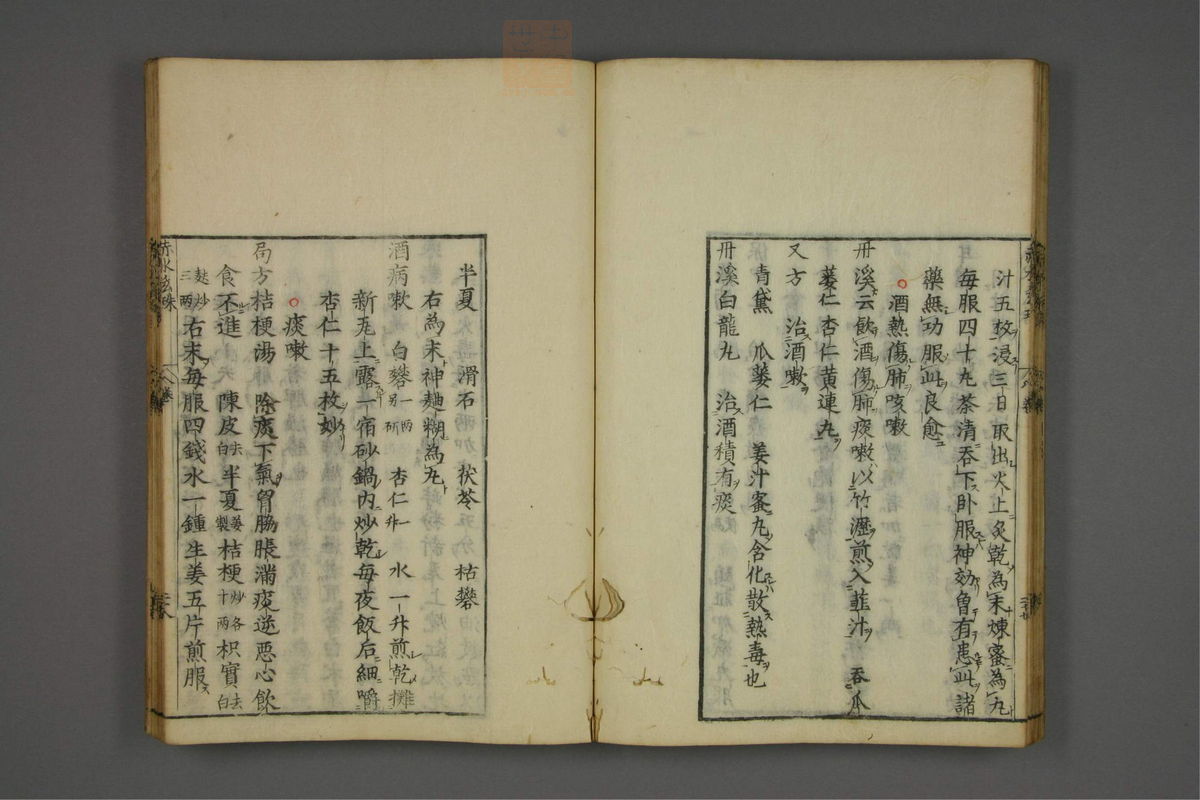 汁五枚浸三日取出火上炙乾為末煉蜜為丸
每服四十丸茶清吞下臥服神効曾有患此諸
藥無功服此良愈
酒熱傷肺咳嗽
丹溪云飲酒傷肺痰嗽以竹瀝煎入韮汁吞瓜
蔞仁杏仁黄連丸
又方 治酒嗽
青黛 瓜蔞仁 姜汁蜜丸含化散熱毒也
丹溪白龍丸 治酒積有痰
半夏 滑石 茯苓 五分 枯礬
右為末神麯糊為丸
酒病嗽 白礬一兩别研 杏仁一升 水一升煎乾攤
新瓦上露一宿砂鍋内炒乾每夜飯后細嚼
杏仁十五枚妙
痰嗽
局方桔梗湯 除痰下氣胷脇脹滿痰逆惡心飲
食不進 陳皮去白 半夏姜製 桔梗炒各十兩 枳實去白
麩炒三兩 右末每服四錢水一鍾生姜五片煎服
赤水玄珠 八卷